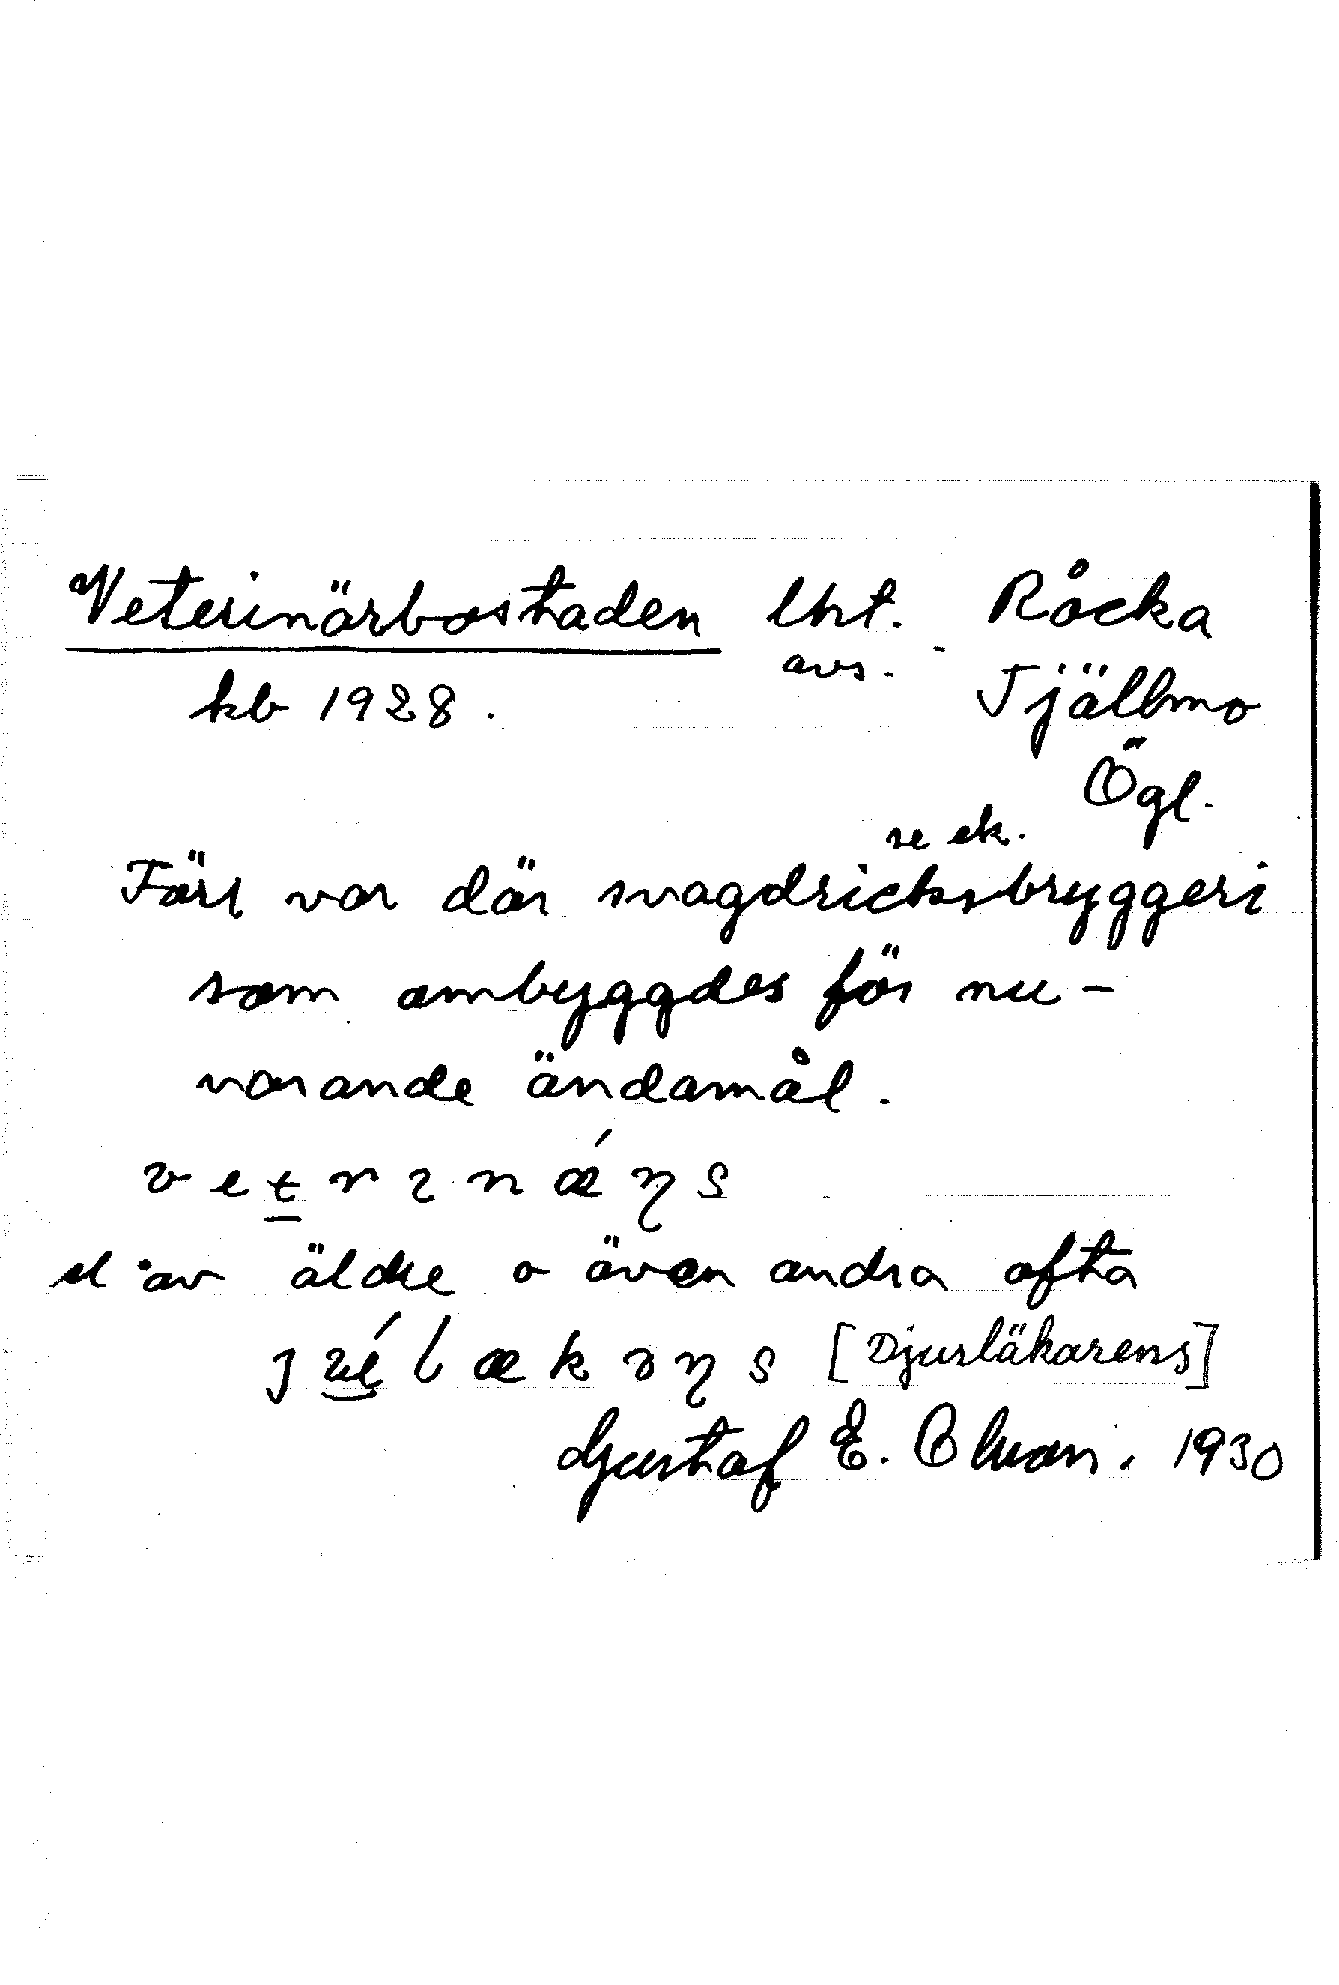 Veterinärbostaden lht. Råcka
avs. Tjällmo
kb 1928.
Ögl.
se ek.
Förr var där svagdricksbryggeri
som ombyggdes för nu-
varande ändamål.
vetrɩnǽηs
el av äldre o även andra ofta
lækəηs [Djurläkarens]
Gustaf E. Olson. 1930